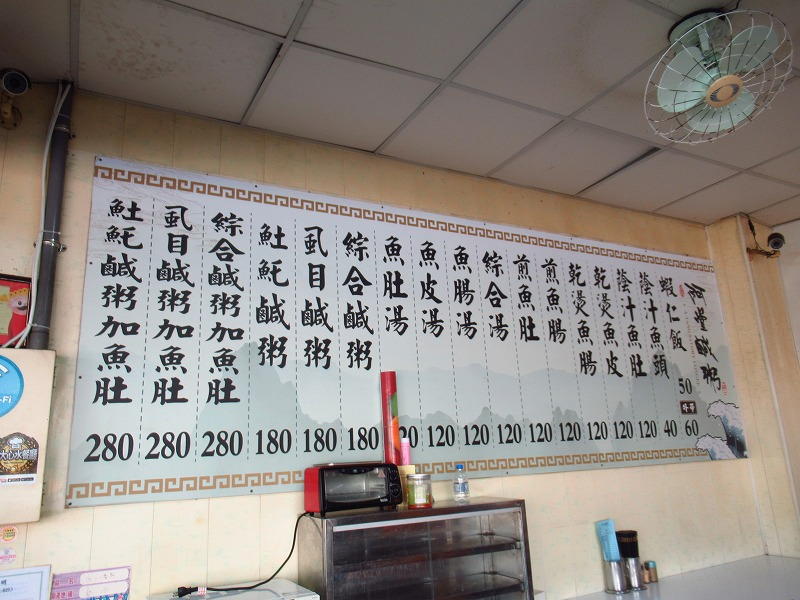 阿堂鹹粥
蝦仁飯 50
60
蔭汁魚頭 40
蔭汁魚肚 120
乾燙魚皮 120
乾燙魚腸 120
煎魚腸 120
煎魚肚 120
綜合湯 120
魚腸湯 120
魚皮湯 120
魚肚湯 20
綜合鹹粥 180
虱目鹹粥 180
𩵚魠鹹粥 180
綜合鹹粥加魚肚 280
虱目鹹粥加魚肚 280
𩵚魠鹹粥加魚肚 280
-Fi